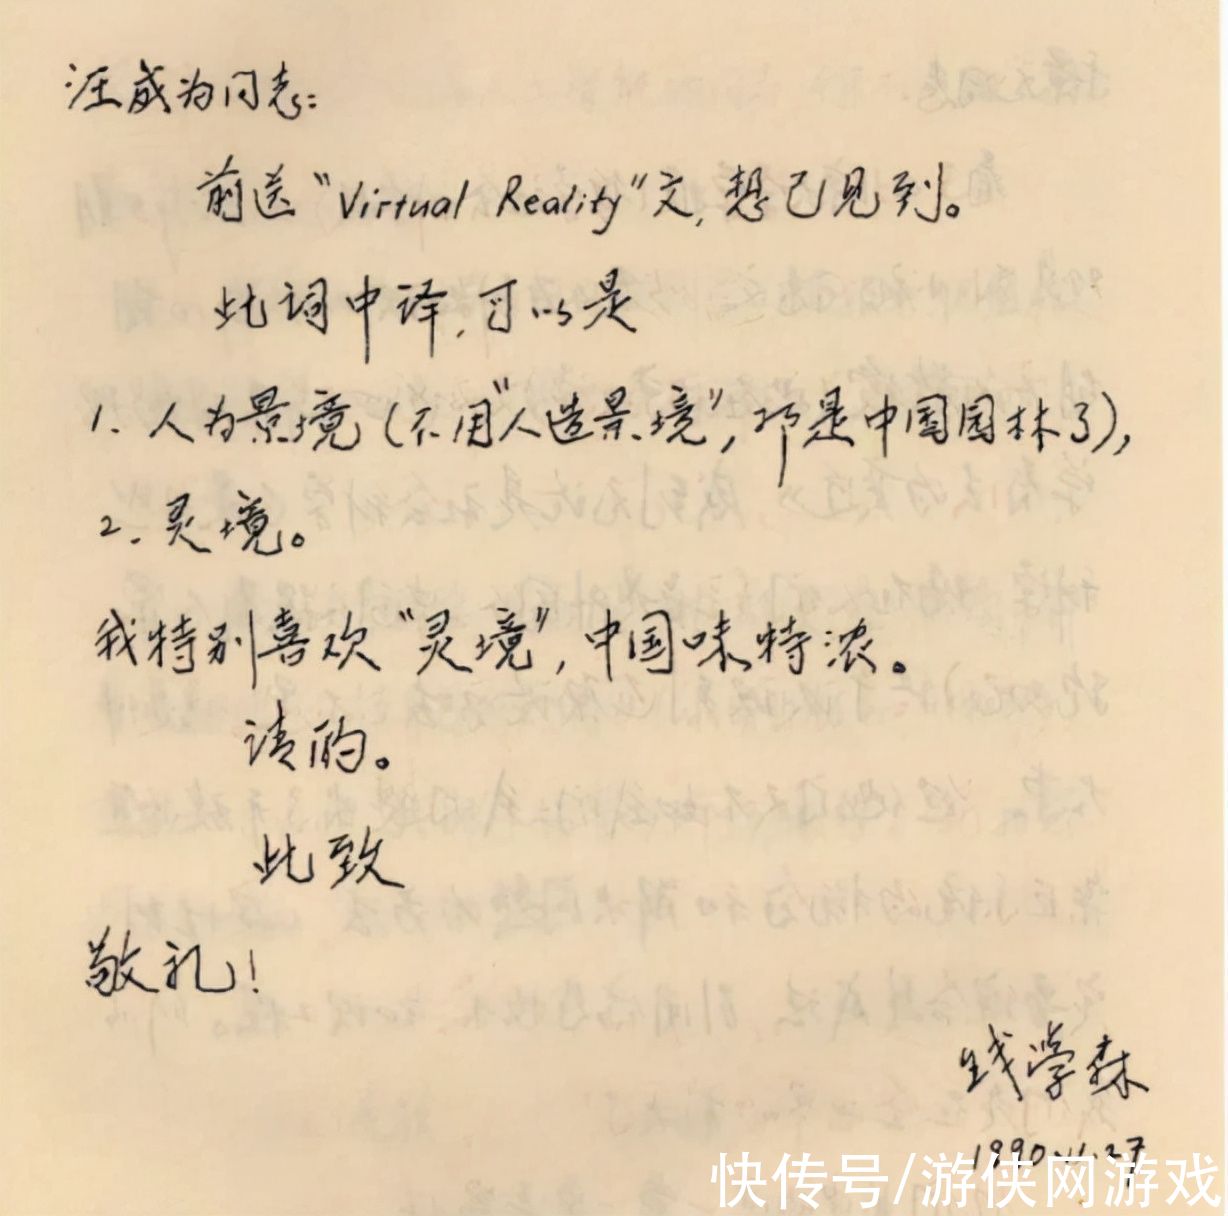 汪成为同志：
前送“Virtual Reality”文，想已见到。
此词中译，可以是
1. 人为景境（不用“人造景境”，那是中国园林了），
2. 灵境。
我特别喜欢“灵境”，中国味特浓。
请酌。
此致
敬礼！
钱学森
1990.11.27
快传号/游侠网游戏